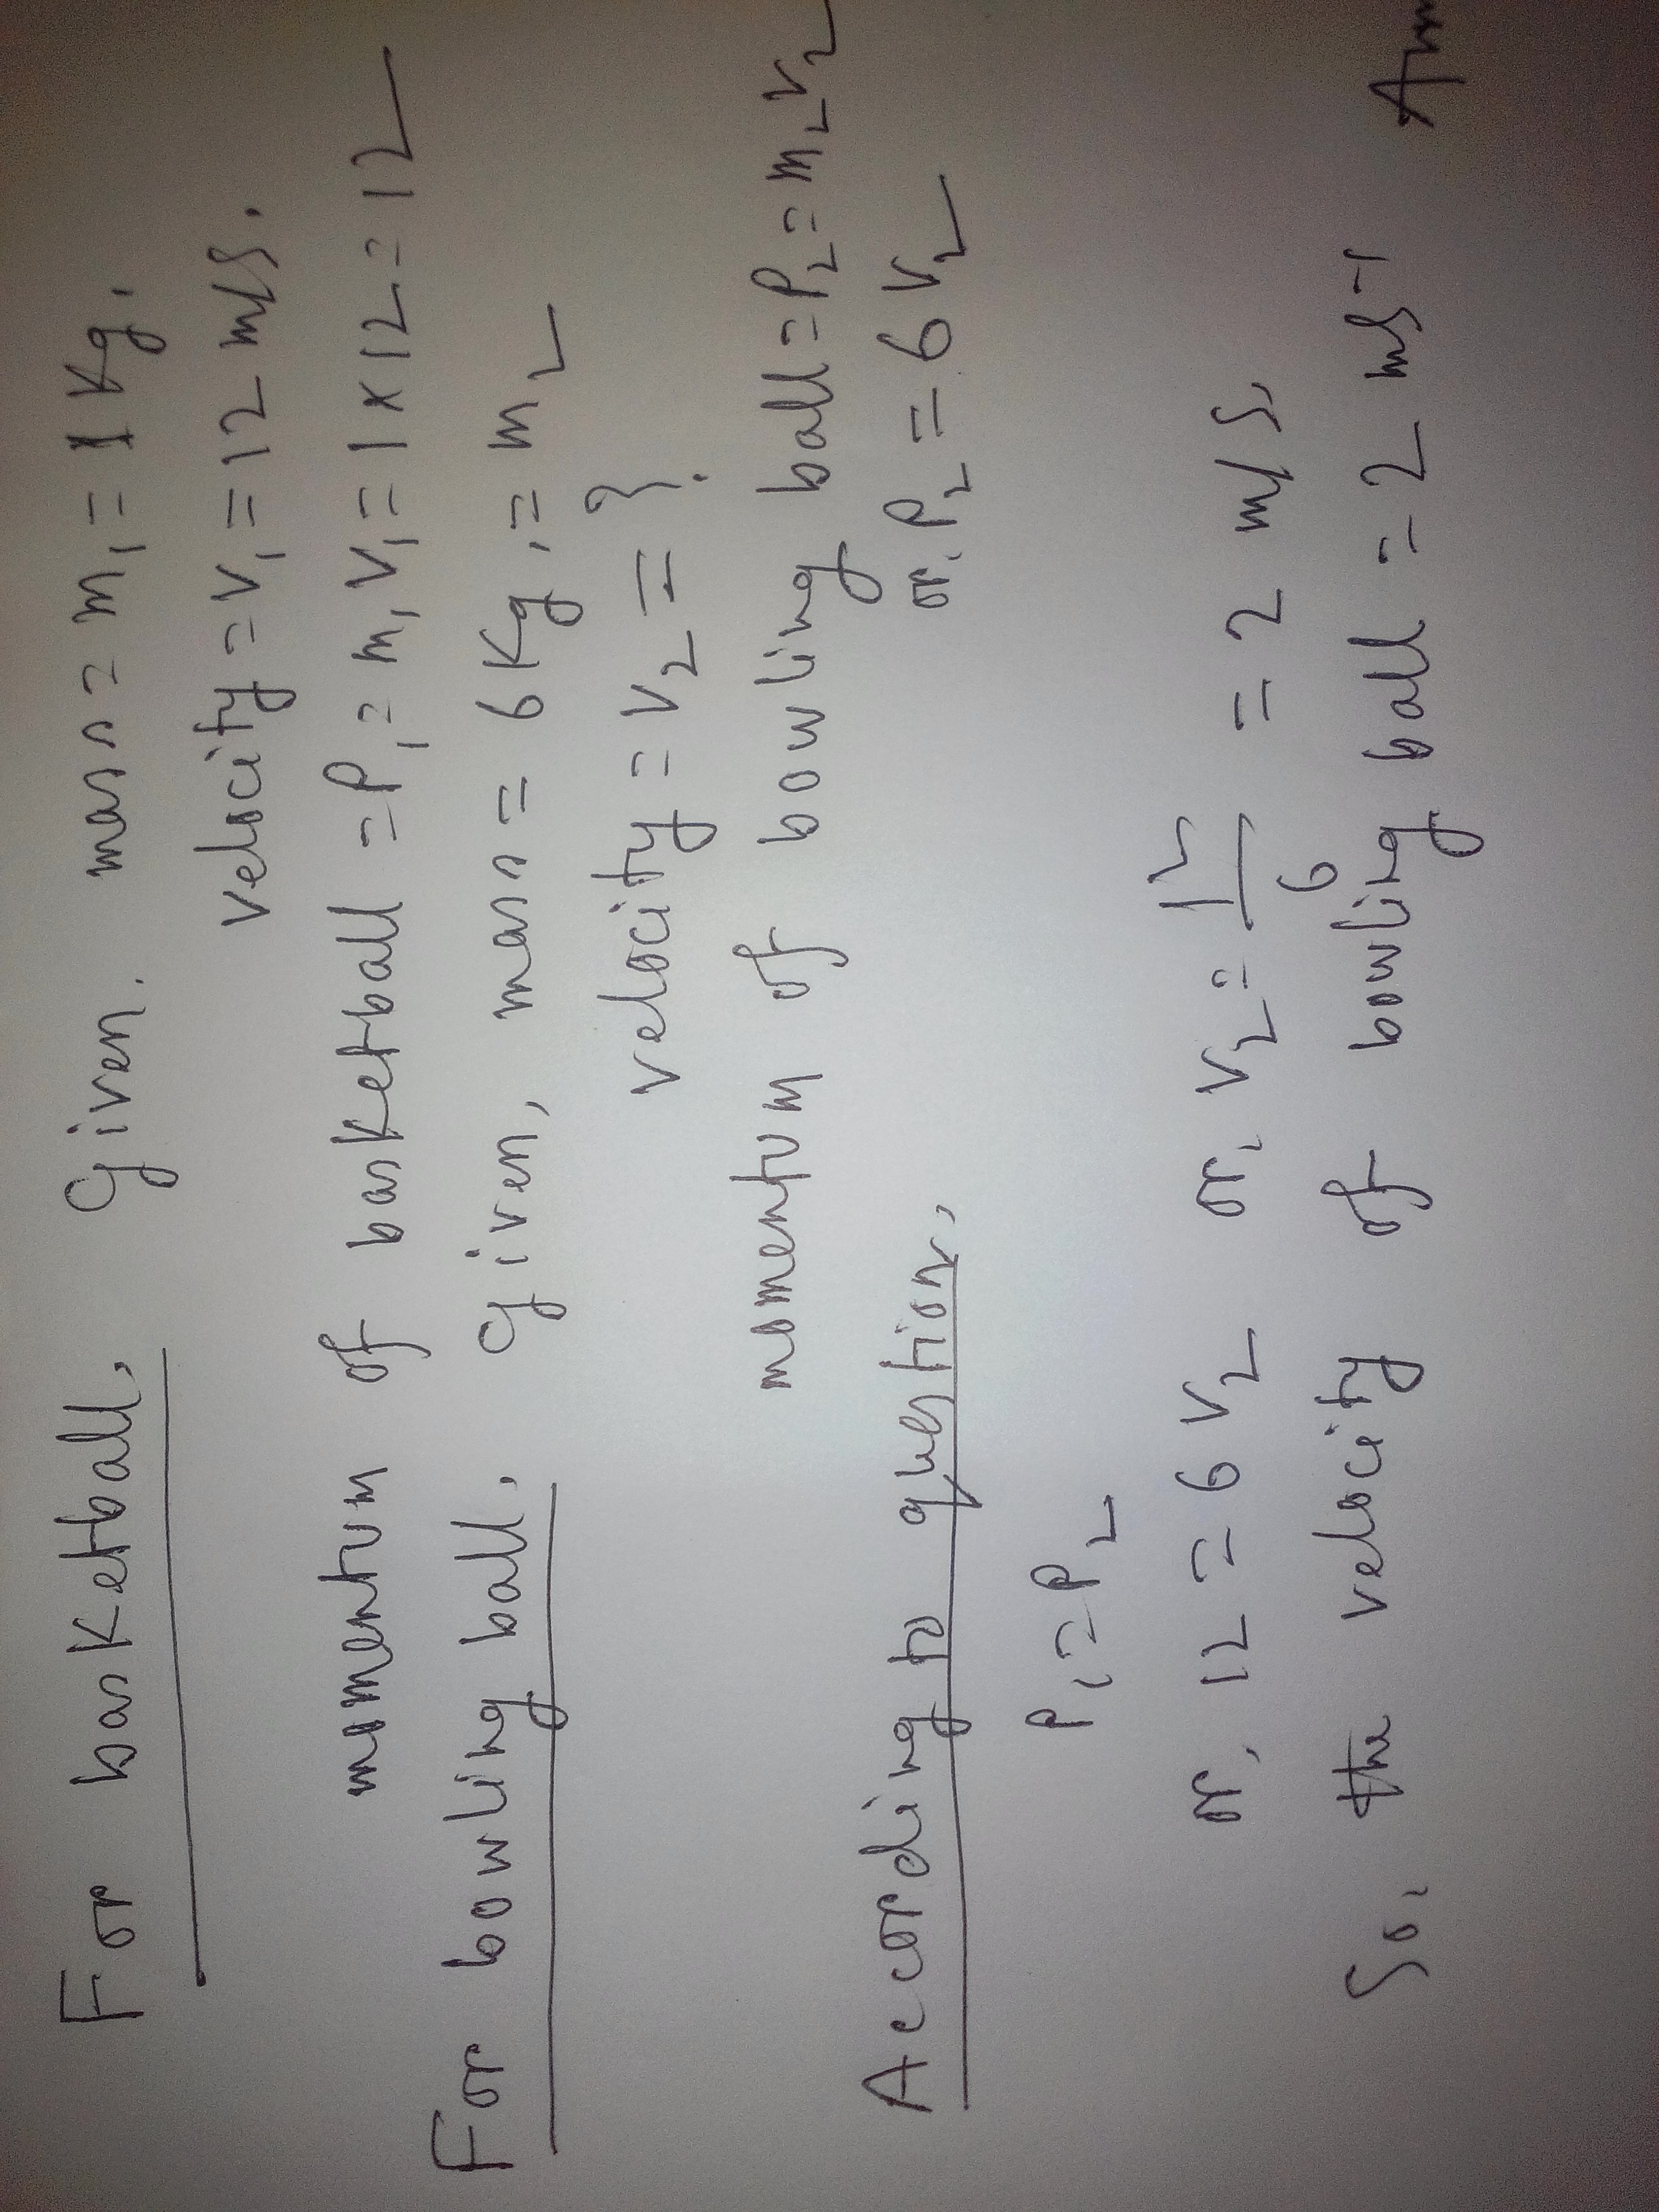 For basketball, given. mass = m₁ = 1 Kg.
velocity = v₁ = 12 m/s.
momentum of basketball = P₁ = m₁v₁ = 1 × 12 = 12
For bowling ball, given, mass = 6 Kg, = m₂
velocity = v₂ = ?
momentum of bowling ball = P₂ = m₂v₂
or, P₂ = 6 v₂
According to question,
P₁ = P₂
or, 12 = 6 v₂ or, v₂ = 12/6 = 2 m/s,
So, the velocity of bowling ball = 2 ms⁻¹